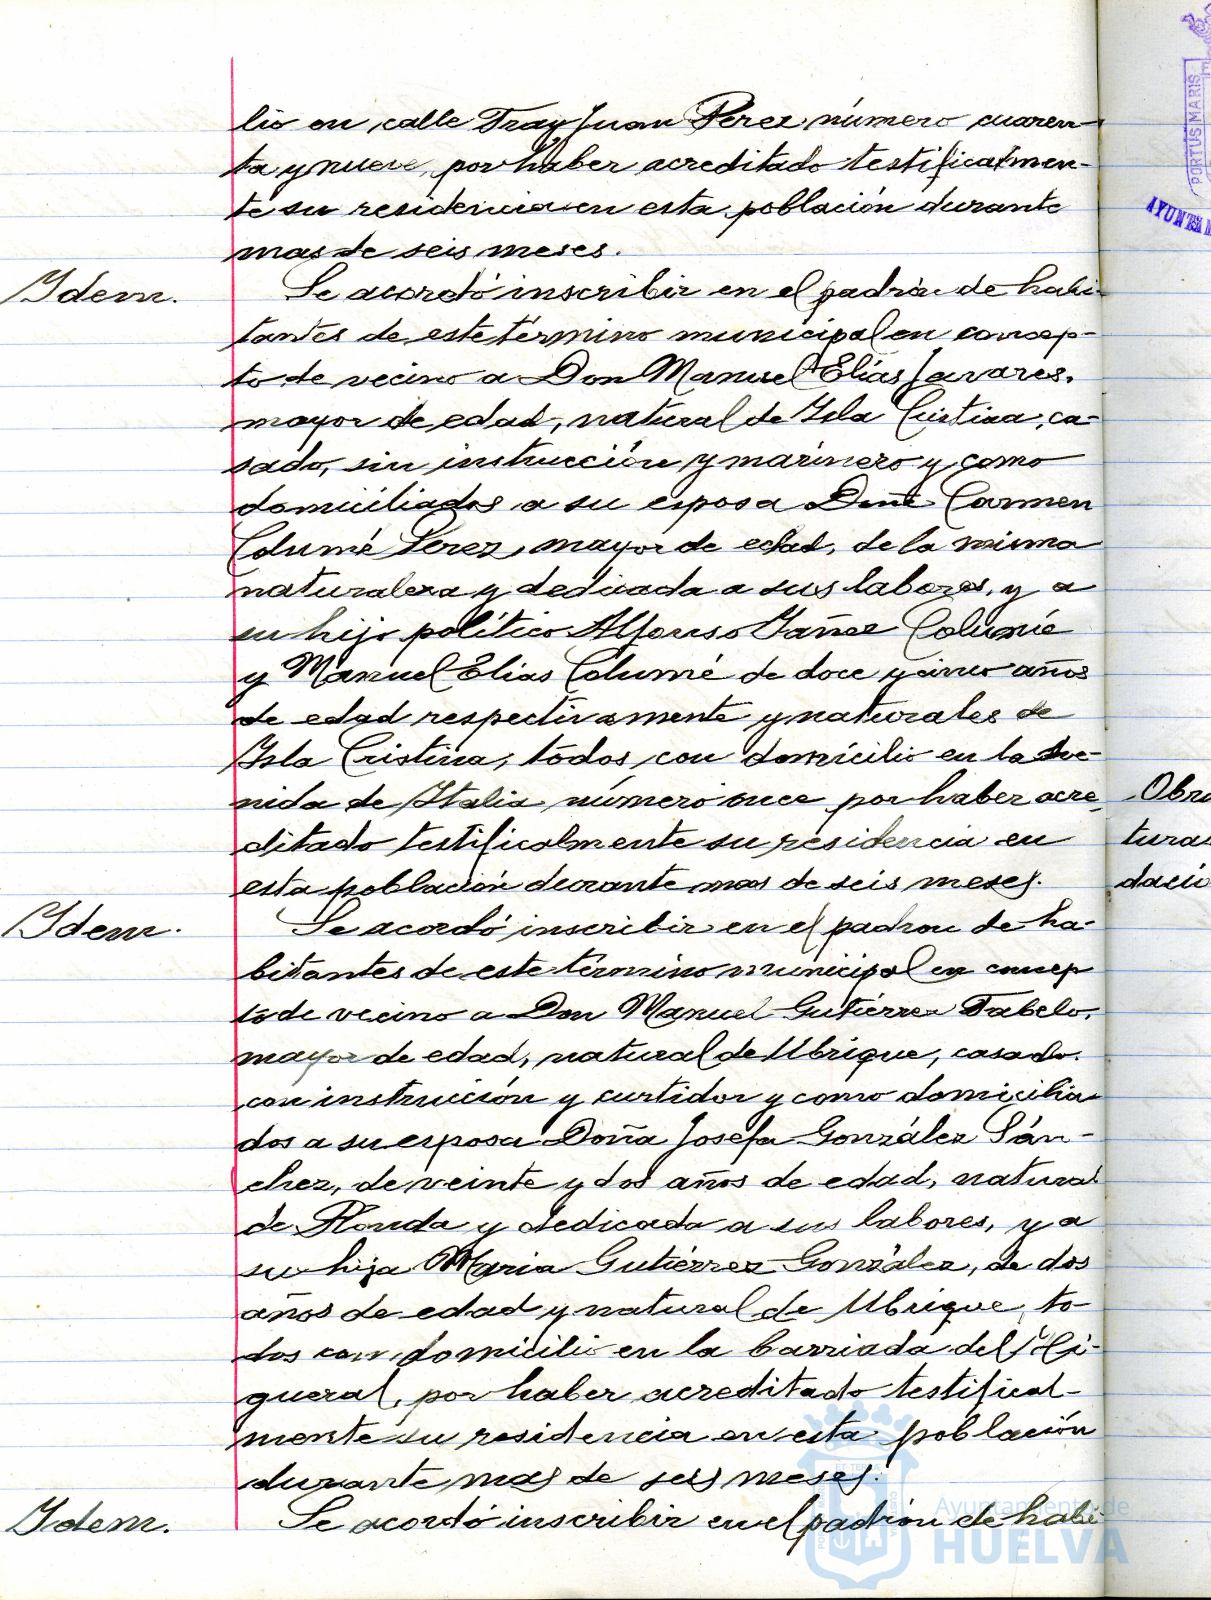 lio en calle Fray Juan Pérez, número cuaren-
ta y nueve, por haber acreditado testificalmen-
te su residencia en esta población durante
mas de seis meses.
Idem. Se acordó inscribir en el padrón de habi-
tantes de este término municipal en concep-
to de vecino a Don Manuel Elías Tavares,
mayor de edad, natural de Isla Cristina, ca-
sado, sin instrucción y marinero y como
domiciliados a su esposa Doña Carmen
Columé Perez, mayor de edad, de la misma
naturaleza y dedicada a sus labores, y a
su hijo político Alfonso Yañez Columé
y Manuel Elías Columé de doce y cinco años
de edad respectivamente y naturales de
Isla Cristina, todos con domicilio en la Ave-
nida de Italia número once por haber acre-
ditado testificalmente su residencia en
esta población durante mas de seis meses.
Idem. Se acordó inscribir en el padron de ha-
bitantes de este término municipal en concep
to de vecino a Don Manuel Gutiérrez Tabelo,
mayor de edad, natural de Ubrique, casado.
con instrucción y curtidor y como domicilia-
dos a su esposa Doña Josefa González Sán-
chez, de veinte y dos años de edad, natural
de Ronda y dedicada a sus labores, y a
su hija Maria Gutiérrez González, de dos
años de edad y natural de Ubrique, to-
dos con domicilio en la barriada del Hi-
gueral, por haber acreditado testifical-
mente su residencia en esta población
durante mas de seis meses.
Idem. Se acordó inscribir en el padrón de habi-
Obra
turas
dació
PORTUS MARIS
AYUNTAM
Ayuntamiento de
HUELVA